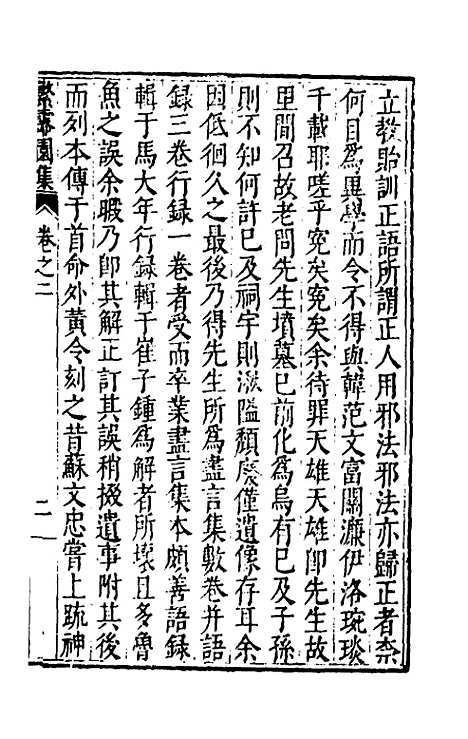 立教貽訓正語所謂正人用邪法邪法亦歸正者柰
何目爲異學而令不得與韓范文富關濂伊洛琬琰
千載耶嗟乎寃矣寃矣余待罪天雄天雄卽先生故
里間召故老問先生墳墓已前化爲烏有已及子孫
則不知何許已及祠宇則湫隘頹廢僅遺像存耳余
因低徊久之最後乃得先生所爲盡言集數卷并語
録三卷行録一卷者受而卒業盡言集本頗善語録
輯于馬大年行録輯于崔子鍾爲解者所壞且多魯
魚之誤余暇乃卽其解正訂其誤稍掇遺事附其後
而列本傳于首命外黃令刻之昔蘇文忠嘗上疏神
繁露園集
卷之二
二